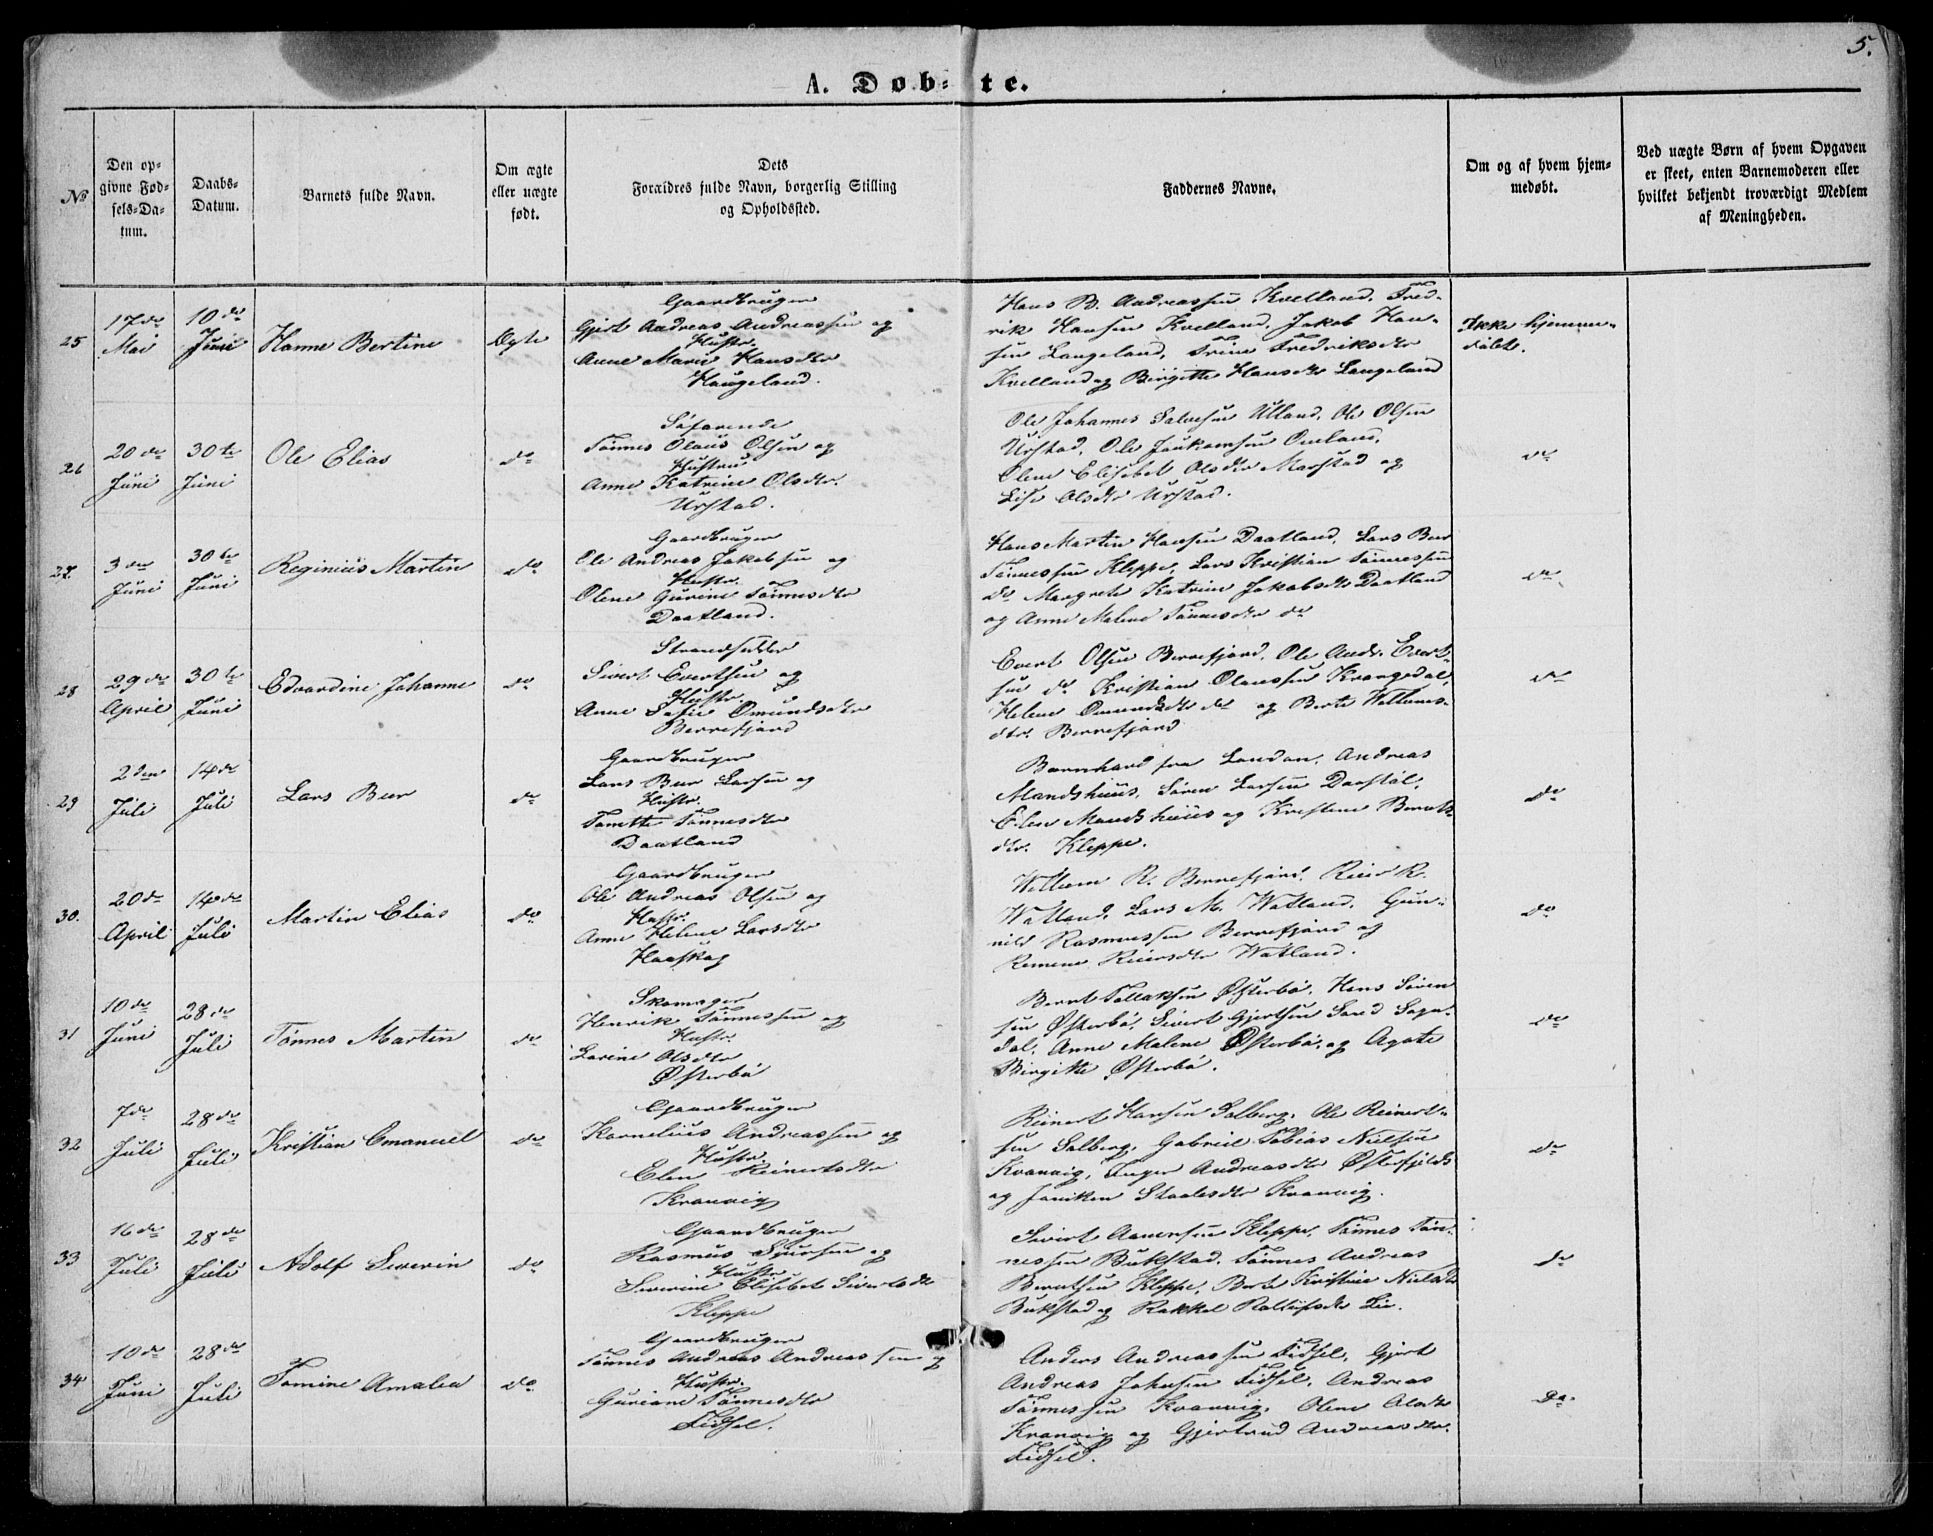 5.
A. Døbte.
No
Den opgivne Fødsels-Datum.
Daabs-Datum.
Barnets fulde Navn.
Om ægte eller uægte født.
Dets Forældres fulde Navn, borgerlig Stilling og Opholdssted.
Faddernes Navne.
Om og af hvem hjemmedøbt.
Ved uægte Børn af hvem Opgaven er skeet, enten Barnemoderen eller hvilket bekjendt troværdigt Medlem af Menigheden.
25
17de Mai
10de Juni
Hanne Bertine
Ægte
Gaardbruger
Gjert Andreas Andreassen og
Hustr.
Anne Marie Hansdtr
Haugeland.
Hans B. Andreassen Kvelland, Fred-
rik Hansen Kvelland, Jakob Han-
sen Langeland, Trine Fredriksdtr
Kvelland og Birgitte Hansdtr Langeland
Ikke hjemme-
døbt.
26
20de Juni
30te Juni
Ole Elias
do
Søfarende
Tønnes Olaus Olsen og
Hustru
Anne Katrine Olsdtr.
Urstad.
Ole Johannes Salvesen Ulland, Ole Olsen
Urstad, Ole Joakomsen Omland,
Olene Elisabet Olsdtr Marstad og
Lise Olsdtr Urstad.
do
27.
3die Juni
30te Juni
Reginius Martin
do
Gaardbruger
Ole Andreas Jakobsen og
Hustr.
Olene Gurine Tønnesdtr
Daatland.
Hans Martin Hansen Daatland, Lars Ber
Tønnessen Kleppe, Lars Kristian Tønnessen
do Margrete Katrine Jakobsdtr Daatland
og Anne Malene Tønnesdtr do
do
28
29de April
30te Juni
Edvardine Johanne
do
Strandsidder
Sivert Evertsen og
Hustr.
Anne Sofie Omundsdtr
Berrefjord
Evert Olsen Berrefjord, Ole Andr. Evert-
sen do Kristian Olaussen Kvangedal,
Helene Omundsdtr do og Berte Willums-
dtr. Berrefjord
do
29
2den Juli
14de Juli
Lars Ber
do
Gaardbruger
Lars Ber Larsen og
Hustr.
Tomette Tønnesdtr
Daatland
Bernhard fra London, Andreas
Mandshuus, Søren Larsen Daastøl,
Elen Mandshuus og Kristene Bernts-
dtr. Kleppe.
do
30.
20de April
14de Juli
Martin Elias
do
Gaardbruger
Ole Andreas Olsen og
Hustr.
Anne Helene Larsdtr
Haaskog
Willum R. Berrefjord, Reier R.
Watland, Lars M. Watland, Gun-
nild Rasmussen Berrefjord og
Remene Reiersdtr Watland.
do
31
10de Juni
28de Juli
Tønnes Martin
do
Skomager
Henrik Tønnessen og
Hustr.
Lorine Olsdtr
Østerbø
Bernt Tollaksen Østerbø, Hans Sivert
sen Østerbø, Sivert Gjertsen Sand Sogn-
dal, Anne Malene Østerbø, og Agate
Birgitte Østerbø.
do
32
7de Juli
28de Juli
Kristian Emanuel
do
Gaardbruger
Kornelius Andreassen og
Hustr.
Elen Reinertsdtr
Kvanvig
Reinert Hansen Solberg, Ole Reinert-
sen Solberg, Gabriel Tobias Nielsen
Kvanvig, Inger Andreasdtr Østerfjeld
og Janiken Staalesdtr Kvanvig.
do
33
16de Juli
28de Juli
Adolf Severin
do
Gaardbruger
Rasmus Sjursen og
Hustr.
Severine Elisabet Sivertsdtr
Kleppe
Sivert Aanensen Kleppe, Tønnes Tøn-
nessen Bukstad, Tønnes Andreas
Berntsen Kleppe, Berte Kristine Nielsdtr
Bukstad og Rakkel Raltufsdtr Lie.
do
34
10de Juni
28de Juli
Tomine Amalia
do
Gaardbruger
Tønnes Andreas Andreassen og
Hustr.
Guriane Tønnesdtr
Fidsel.
Anders Andreassen Fidsel, Gjert
Andreas Johnsen Fidsel, Andreas
Tønnessen Kvanvig, Olene Olsdtr
Kvanvig og Gjertrud Andreasdtr.
Fidsel.
Do.